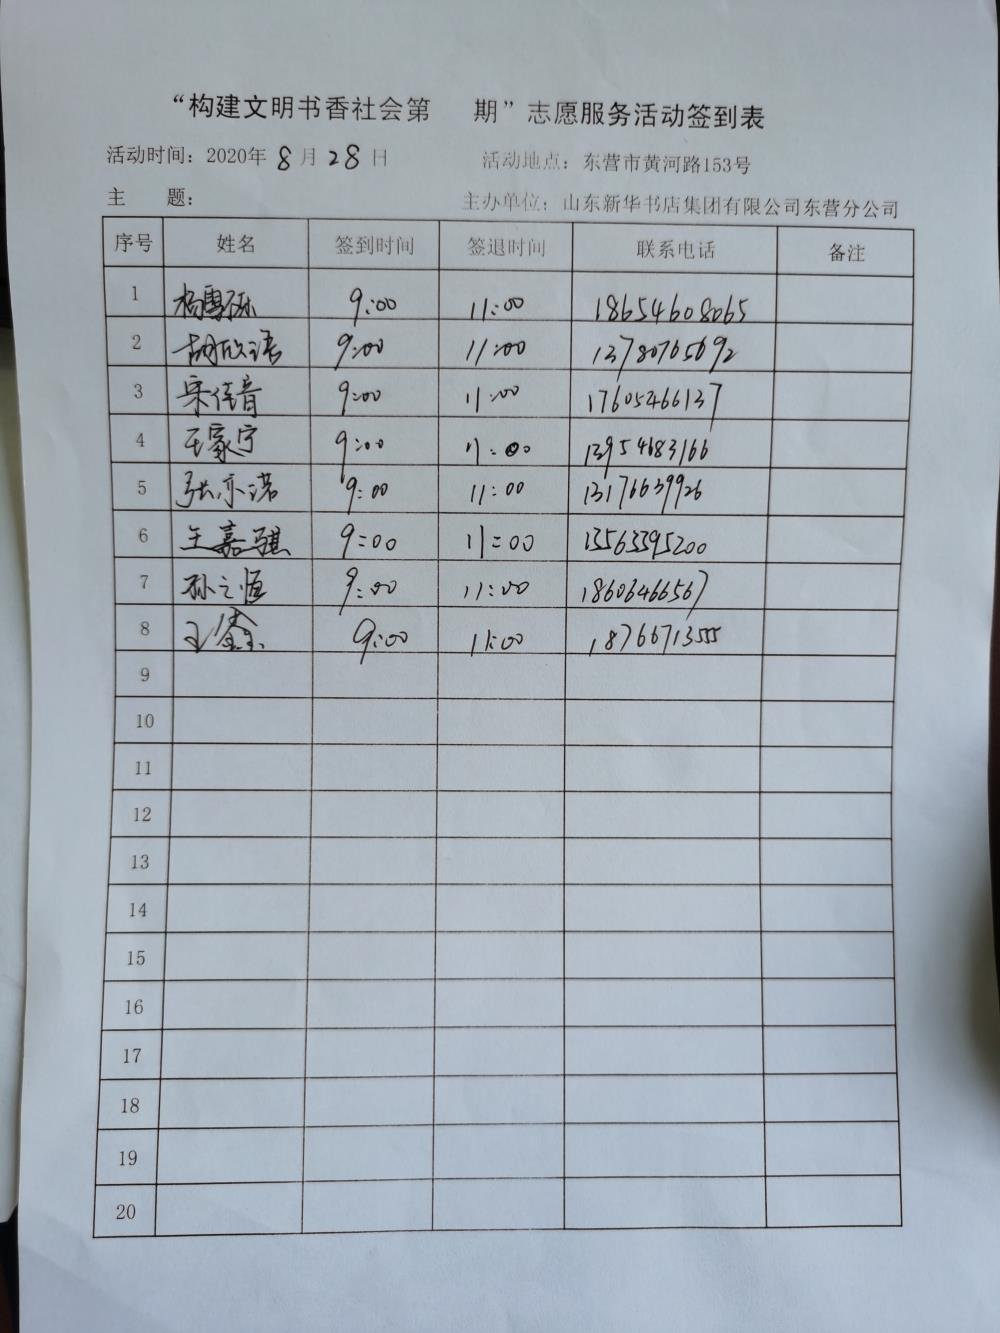 “构建文明书香社会第 期”志愿服务活动签到表
活动时间：2020年 8 月 28 日 活动地点：东营市黄河路153号
主 题： 主办单位：山东新华书店集团有限公司东营分公司
序号 姓名 签到时间 签退时间 联系电话 备注
1 杨雪 9:00 11:00 18654608065
2 胡欣语 9:00 11:00 13780765692
3 宋佳音 9:00 11:00 17605466137
4 王家宁 9:00 11:00 13954683166
5 张亦诺 9:00 11:00 13176639926
6 王嘉骐 9:00 11:00 13563395200
7 孙之恒 9:00 11:00 18606466567
8 王鑫 9:00 11:00 18766713555
9
10
11
12
13
14
15
16
17
18
19
20